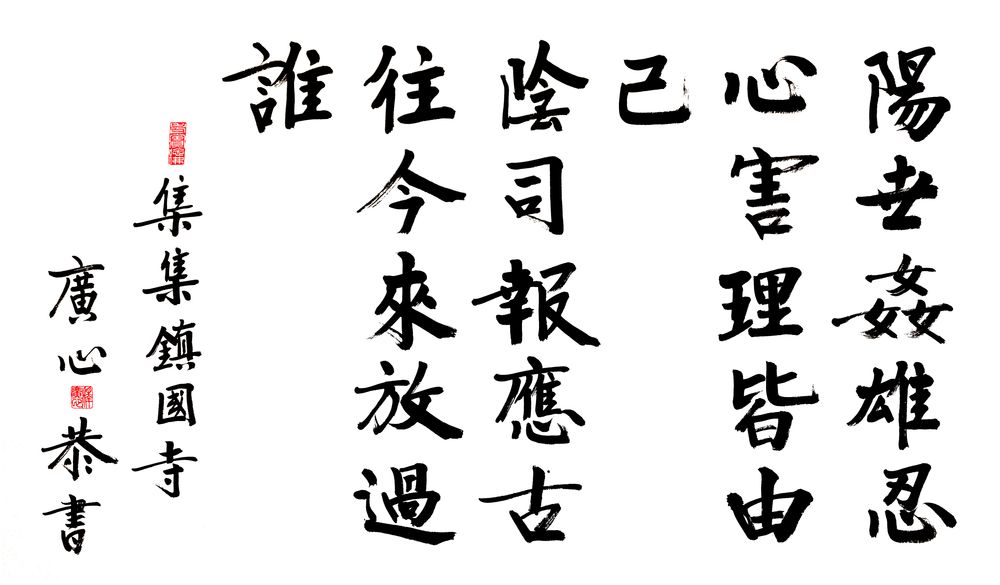 陽世姦雄忍
心害理皆由
己
陰司報應古
往今來放過
誰
集集鎮國寺
廣心恭書